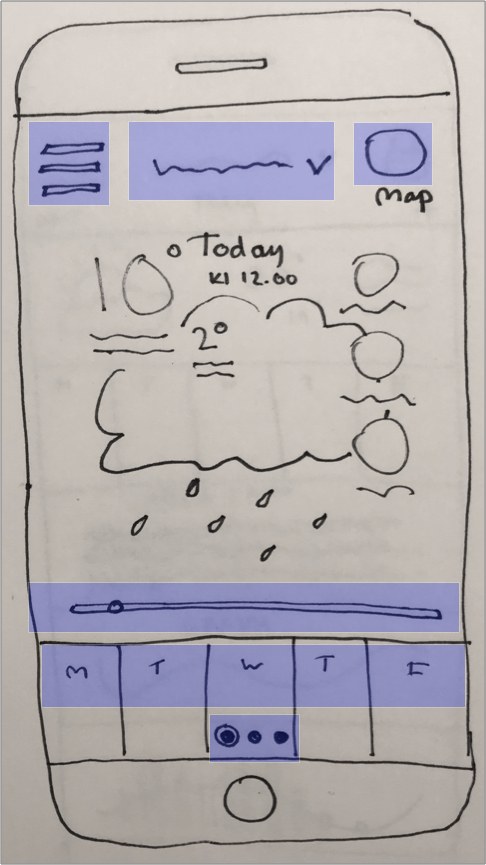 Map
Today
10°
Kl 12.00
2°
M T W T F